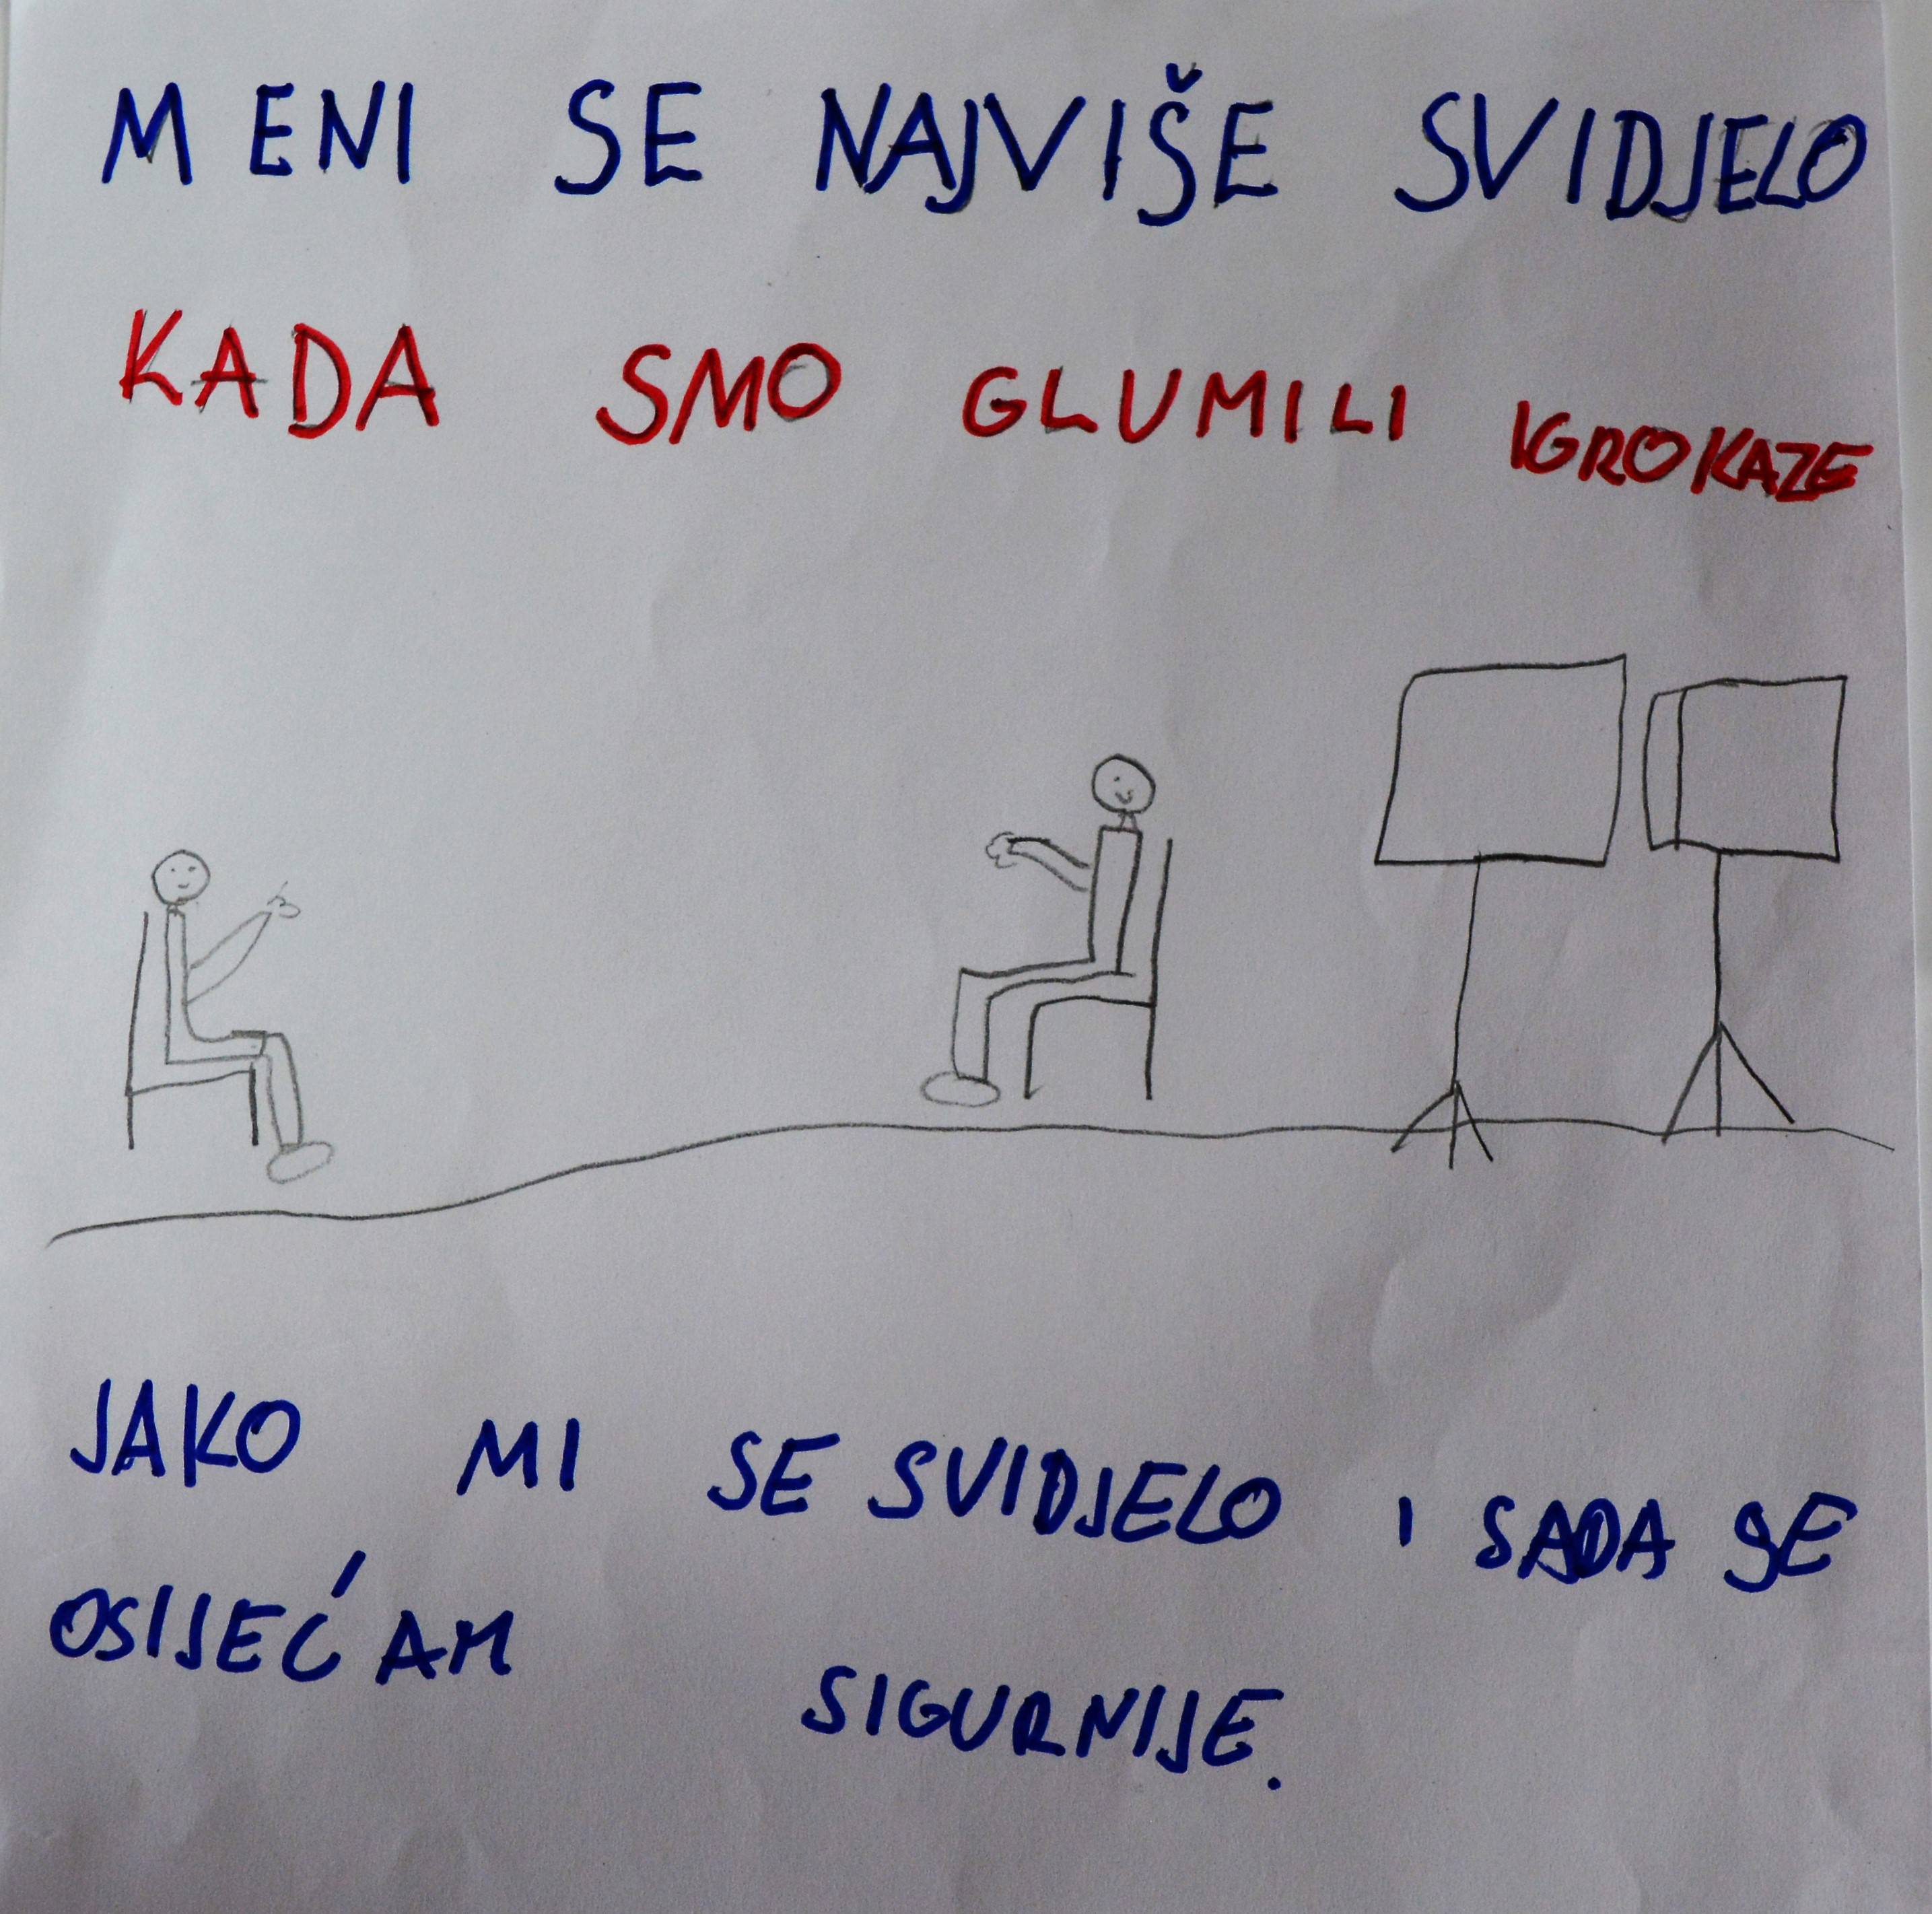 MENI SE NAJVIŠE SVIDJELO
KADA SMO GLUMILI IGROKAZE
JAKO MI SE SVIDJELO I SADA SE
OSIJEĆAM SIGURNIJE.